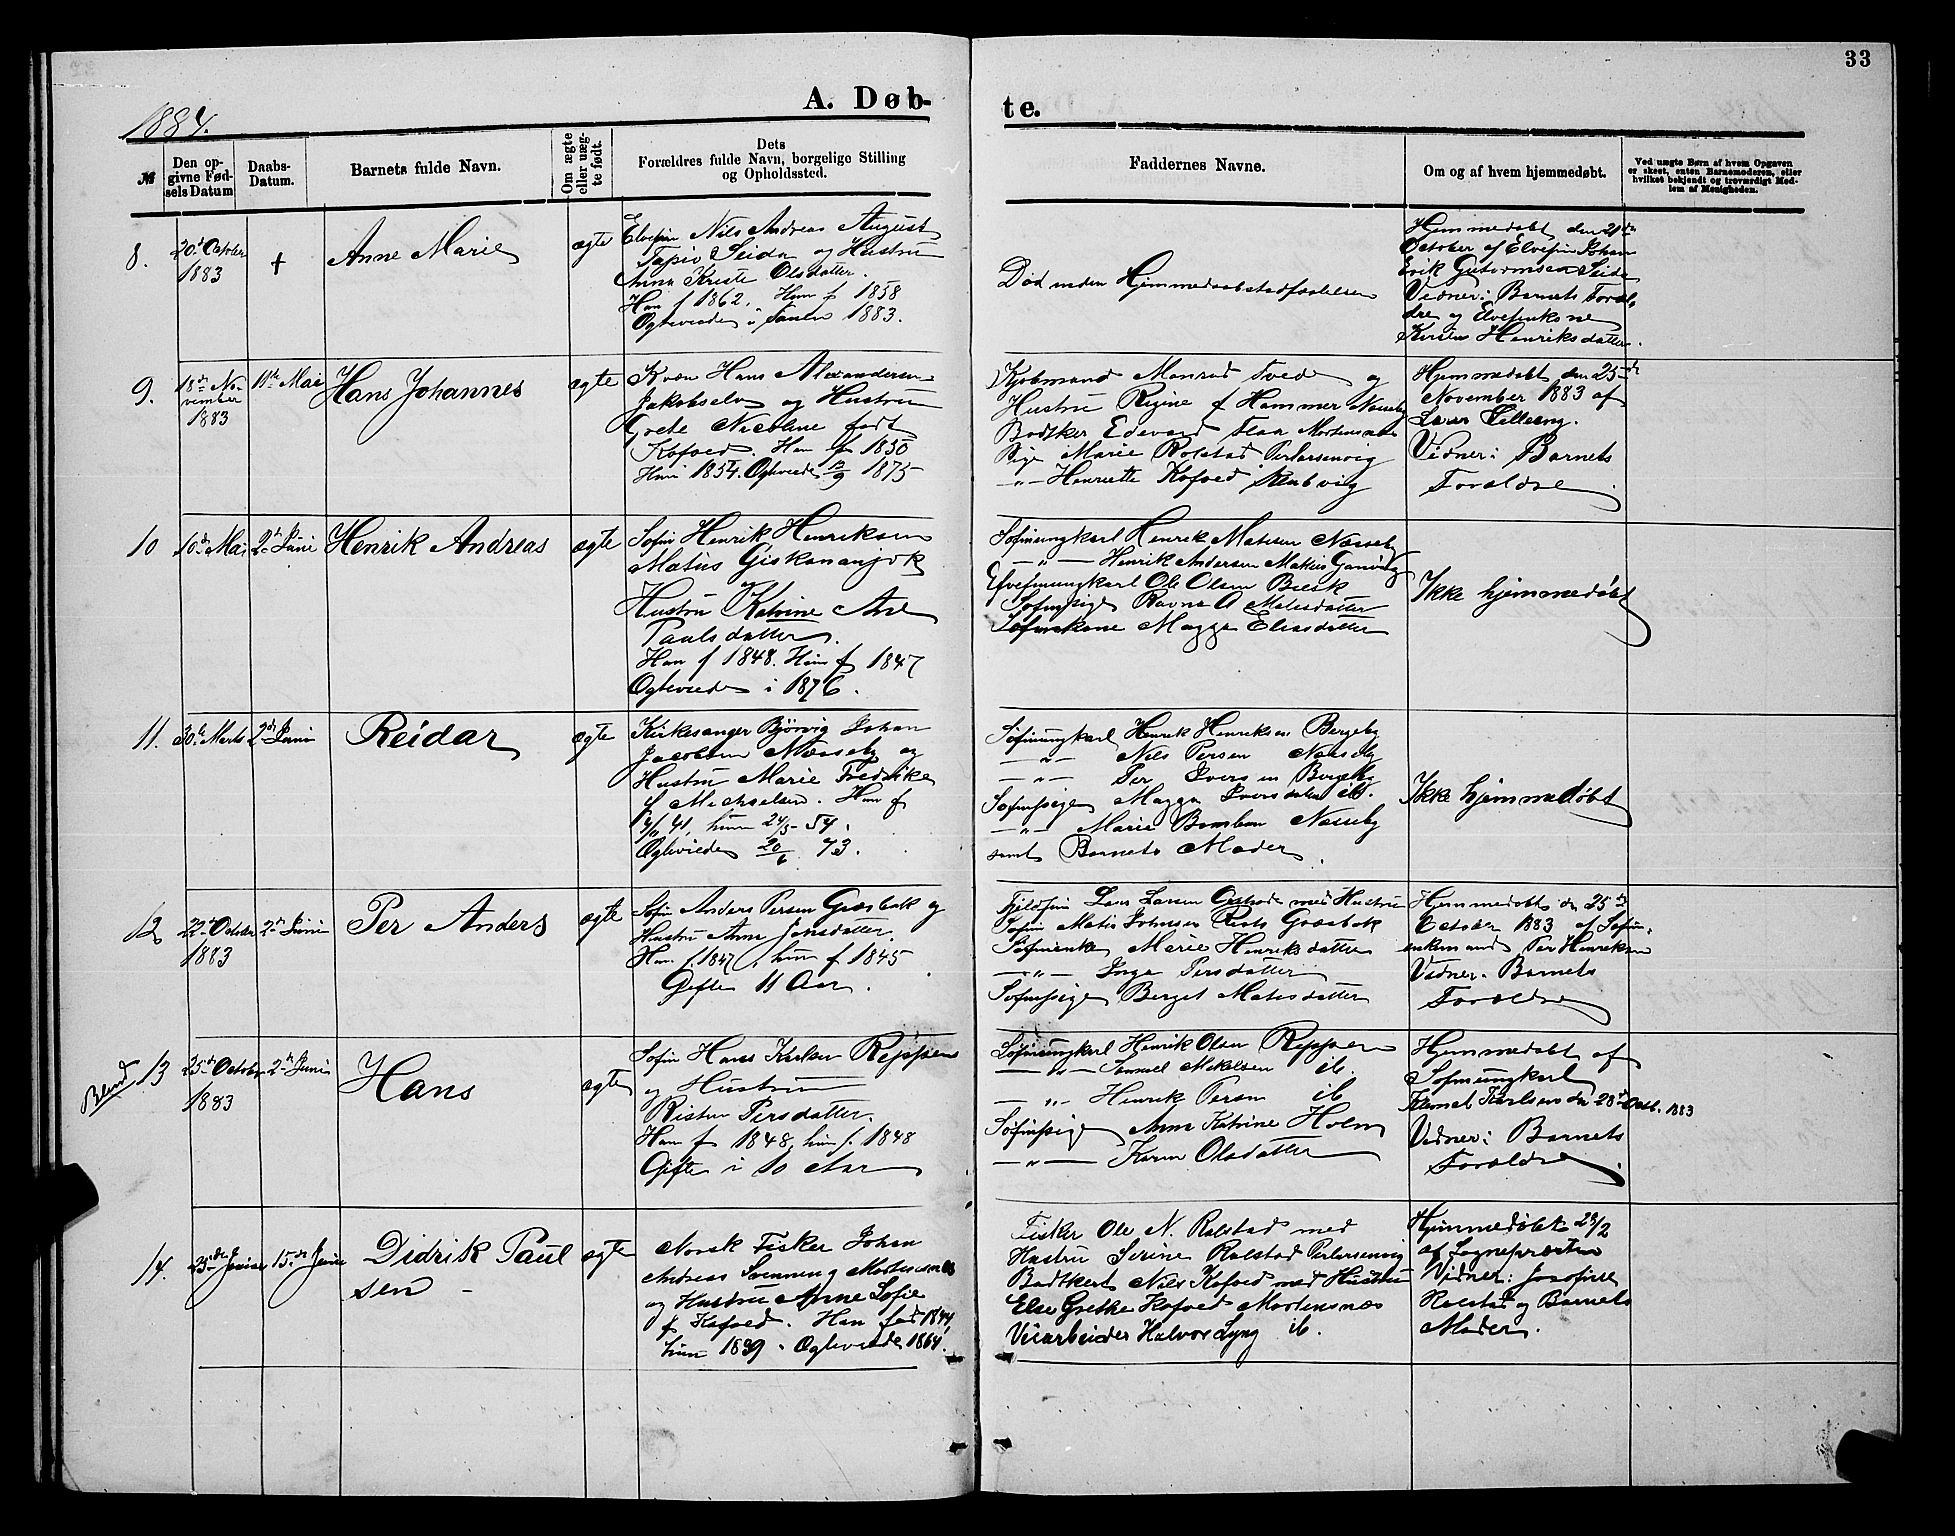 33
A. Døb-
te.
1884.
№
Den op-
givne Fød-
sels Datum
Daabs-
Datum.
Barnets fulde Navn.
Om ægte
eller uæg-
te født.
Dets
Forældres fulde Navn, borgelige Stilling
og Opholdssted.
Faddernes Navne.
Om og af hvem hjemmedøbt.
Ved uægte Børn af hvem Opgaven
er skeet, enten Barnemoderen, eller
hvilket bekjendt og troværdigt Med-
lem af Menigheden.
8.
20de October
1883
+
Anne Marie
ægte
Elvefin Nils Andreas August
Tapio Seida og Hustru
Anna Kriste Olsdatter.
Han f 1862. Hun f 1858
Ogteviede i Tanen 1883.
Død uden Hjemmedaabstadfæstelsen
Hjemmedøbt den 21de
October af Elvefin Johan
Erik Guttormsen Seida
Vidner: Barnets Foræl-
dre og Elvefinkone
Kirsten Henriksdatter.
9.
18de No-
vember
1883
11te Mai
Hans Johannes
ægte
Kvæn Hans Alexandersen
Jakobselv og Hustru
Grete Nicoline født
Kofoed. Han f 1850
Hun 1854. Ogteviede 12/9 1875
Kjøbmand Monrad Tvede og
Hustru Regine f Hammer Næsseby
Bødtker Edevard Flaa Mortensnæs
Pige Marie Rolstad Perlarsenvig
-„- Henriette Kofoed
Hjemmedøbt den 25de
November 1883 af
Lars Lilleeng.
Vidner: Barnets
Forældre
10
10de Mai
2den Juni
Henrik Andreas
ægte
Søfin Henrik Henriksen
Matius Giskonanjok
og
Hustru Katrine Ane
Paulsdatter.
Han f 1848. Hun f 1847
Ogteviede i 1876.
Søfinungkarl Henrik Matisen Næsseby
-„- Henrik Andersen Matius Gamvig
Elvefinungkarl Ole Olsen Busk
Søfinpige Ravna A Matisdatter
Søfinkone Magga Eliasdatter
Ikke hjemmedøbt
11.
30te Marts
2den Juni
Reidar
ægte
Kirkesanger Bjørvig Johan
Jacobsen Næsseby og
Hustru Marie Fredrike
f Michaelsen. Han f
4/11 41, hun 24/5 - 54.
Ogteviede 20/6 73.
Søfinungkarl Henrik Henriksen Bergeby
-„- Nils Persen Næsseby
-„- Per Iversen Bergeby
Søfinpige Magga Iversdatter ib.
-„- Marie Bomban Næsseby
samt Barnets Moder.
Ikke hjemmedøbt
12
22de October
1883
2den Juni
Per Anders
ægte
Søfin Anders Persen Græsbak og
Hustru Anne Jonsdatter.
Han f. 1847, hun f 1845
Gifte 11 Aar.
Fjeldfin Lars Larsen med Hustru
Søfin Matis Johnsen Græsbak
Søfinenke Marie Henriksdatter
-„- Inga Persdatter
Søfinpige Berget Matisdatter
Hjemmedøbt den 25de
October 1883 af Søfin-
enkemand Per Henriksen
Vidner. Barnets
Forældre
Blind
13
25de October
1883
2den Juni
Hans
ægte
Søfin Hans Karlsen Reppen
og Hustru
Risten Persdatter.
Han f 1848, hun f. 1848
Gifte i 10 Aar
Søfinungkarl Henrik Olsen Reppen
-„- Samuel Mikelsen ib.
-„- Henrik Persen ib
Søfinpige Anne Katrine Holm
-„- Karen Olsdatter
Hjemmedøbt af
Søfinungkarl
Klemet Karlsen den 28de Octb. 1883
Vidner: Barnets
Forældre.
14.
15de Juni
Didrik Paul
sen -
ægte
Norsk Fisker Johan
Andreas Svenning Mortensnæs
og Hustru Anne Sofie
f. Kofoed. Han fød 1844,
hun 1839. Ogteviede 1864.
Fisker Ole N. Rolstad med
Hustru Serine Rolstad Perlarsenvig
Bødtkert Nils Kofoed med Hustru
Else Grethe Kofoed Mortensnæs
Veiarbeider Halvor Lyng ib.
Hjemmedøbt 23/2
af Sognepræsten
Vidner: Josefine
Rolstad og Barnets
Moder.